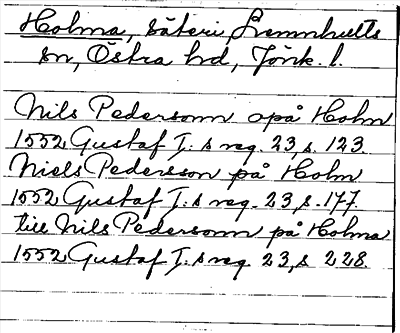 Holma, säteri, Lemnhults
sn, Östra hd, Jönk. l.
Nils Pedersonn opå Holm
1552, Gustaf I:s reg. 23, s. 123.
Niels Pedersson på Holm
1552 Gustaf I:s reg. 23, s. 177.
till Nils Pedersonn på Holma
1552, Gustaf I:s reg 23, s 228.